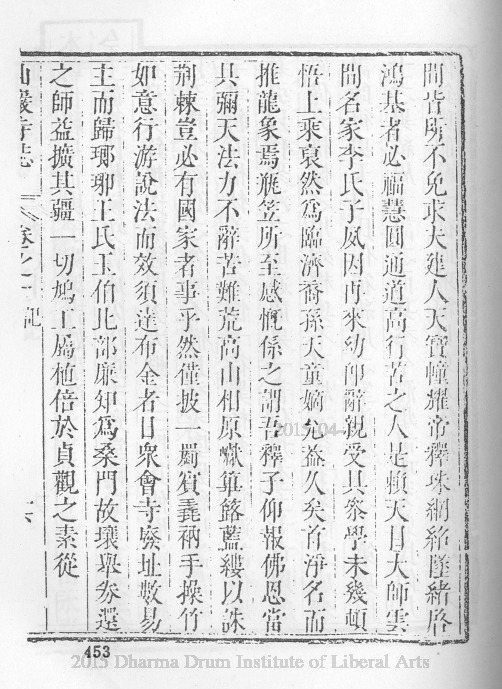 間皆所不免求夫建人天寶幢耀帝釋珠網紹墜緒啓
鴻基者必福慧圓通道高行苦之人是賴天目大師雲
間名家李氏子夙因再來幼卽辭親受具參學未幾頓
悟上乘裒然爲臨濟裔孫天童嫡允葢久矣首淨名而
推龍象焉瓶笠所至感慨係之謂吾釋子仰報佛恩當
具彌天法力不辭苦難荒高山相原巘篳簬藍縷以誅
荆棘豈必有國家者事乎然僅披一罽賓毳衲手操竹
如意行游說法而效須達布金者日衆會寺廢址數易
主而歸瑯琊王氏玉伯比部廉知爲桑門故壤舉劵還
之師益擴其疆一切鳩工屬植倍於貞觀之素從
山嚴寺志 卷之一 記 十六
453
2015-04-
2015 Dharma Drum Institute of Liberal Arts